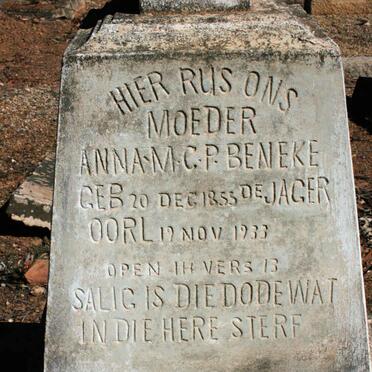 HIER RUS ONS
MOEDER
ANNA·M·C·P·BENEKE
GEB 20 DEC 1853 DE JAGER
OORL 19 NOV 1933
OPEN 14 VERS 13
SALIG IS DIE DODE WAT
IN DIE HERE STERF